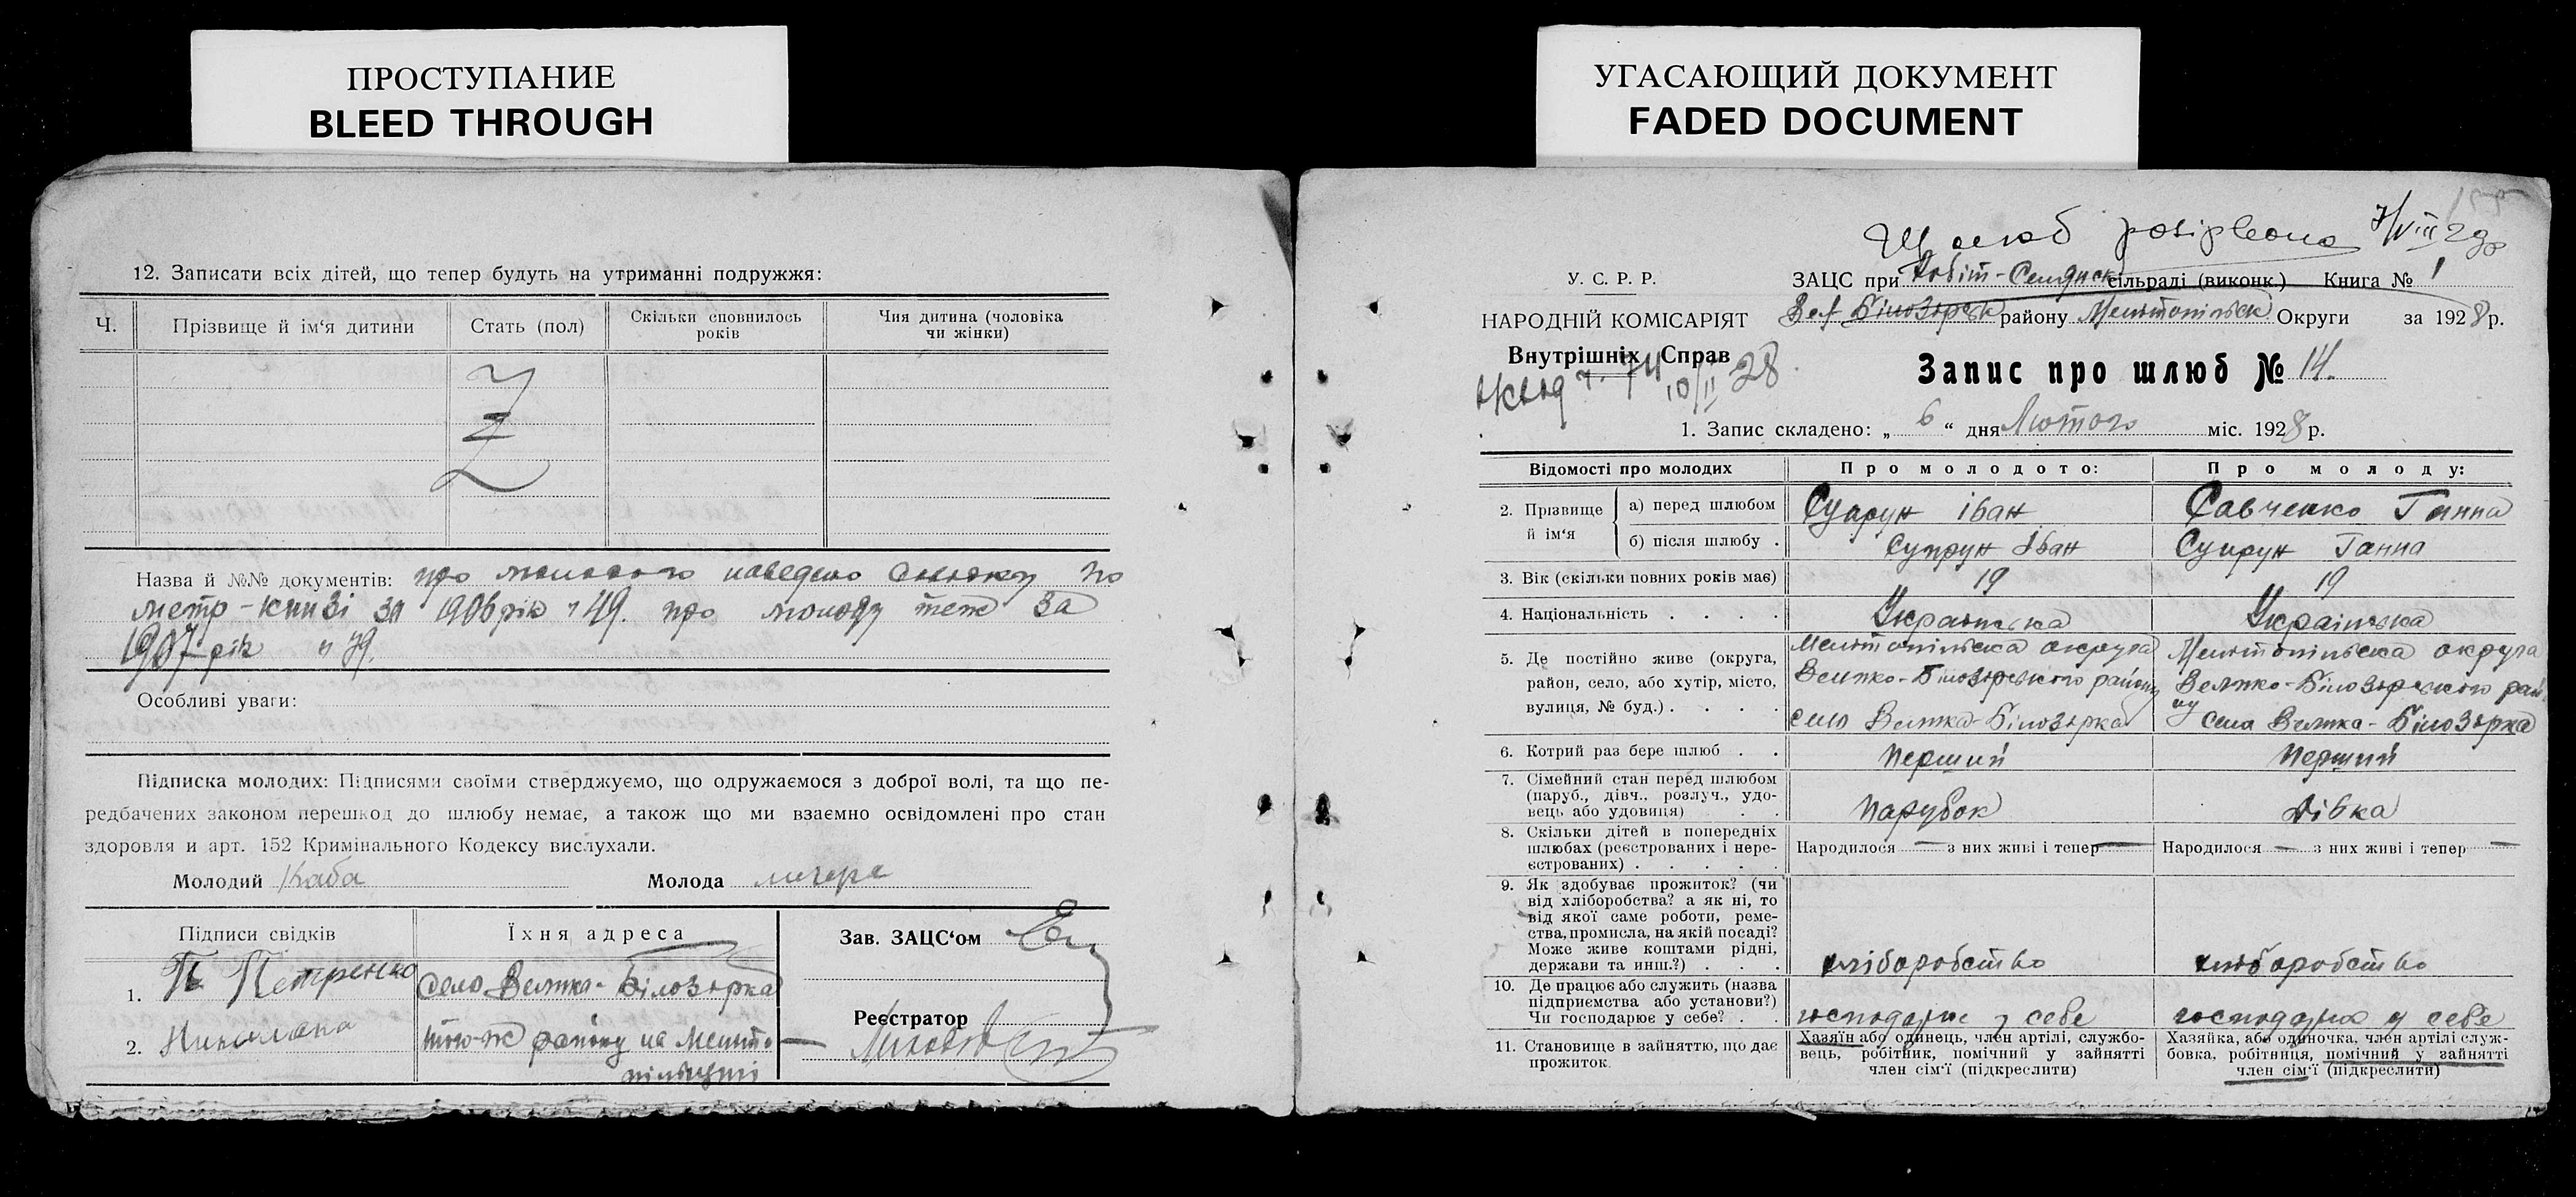 ПРОСТУПАНИЕ
BLEED THROUGH
12. Записати всіх дітей, що тепер будуть на утриманні подружжя:
Ч.
Прізвище й ім'я дитини
Стать (пол)
Скільки сповнилось
років
Чия дитина (чоловіка
чи жінки)
Назва й №№ документів: про молодого наведено по
метр-книзі за 1906 рік 49. про молоду теж за
1907 рік 79.
Особливі уваги:
Підписка молодих: Підписями своїми стверджуємо, що одружаємося з доброї волі, та що пе-
редбачених законом перешкод до шлюбу немає, а також що ми взаємно освідомлені про стан
здоровля и арт. 152 Кримінального Кодексу вислухали.
Молодий
Молода
Підписи свідків
Їхня адреса
1. Петренко
село Велика-Білозірка
2.
того-ж району на Меліто-
Зав. ЗАЦС'ом
Реєстратор
УГАСАЮЩИЙ ДОКУМЕНТ
FADED DOCUMENT
Шлюб розірвано 7/VIII 29р
У. С. Р. Р.
НАРОДНІЙ КОМІСАРІЯТ
Внутрішніх Справ
74 10/II 28.
ЗАЦС при Робіт-Селянск сільраді (виконк.) Книга № 1
Вел Білозірськ району Мелітопільск Округи за 1928 р.
Запис про шлюб № 14.
1. Запис складено: „ 6 “ дня Лютого міс. 1928 р.
Відомості про молодих
Про молодого:
Про молоду:
2. Прізвище й ім'я
а) перед шлюбом
Супрун Іван
Савченко Ганна
б) після шлюбу .
Супрун Іван
Супрун Ганна
3. Вік (скільки повних років має)
19
19
4. Національність . . . .
Українська
Українська
5. Де постійно живе (округа,
район, село, або хутір, місто,
вулиця, № буд.) . . . .
Мелітопільска округа
Велико-Білозірського району
село Велика-Білозірка
Мелітопільска округа
Велико-Білозірського рай
ну села Велика-Білозірка
6. Котрий раз бере шлюб . .
Перший
Перший
7. Сімейний стан перед шлюбом
(паруб., дівч., розлуч., удо-
вець або удовиця) . .
Парубок
Дівка
8. Скільки дітей в попередніх
шлюбах (реєстрованих і нере-
єстрованих) . . . . .
Народилося — з них живі і тепер —
Народилося — з них живі і тепер —
9. Як здобуває прожиток? (чи
від хліборобства? а як ні, то
від якої саме роботи, реме-
ства, промисла, на якій посаді?
Може живе коштами рідні,
держави та инш.?) . . .
хліборобство
хліборобство
10. Де працює або служить (назва
підприємства або установи?)
Чи господарює у себе? . .
господарює у себе
господарка у себе
11. Становище в зайняттю, що дає
прожиток
Хазяїн або одинець, член артілі, службо-
вець, робітник, помічний у зайнятті
член сім'ї (підкреслити)
Хазяйка, або одиночка, член артілі служ-
бовка, робітниця, помічний у зайнятті
член сім'ї (підкреслити)